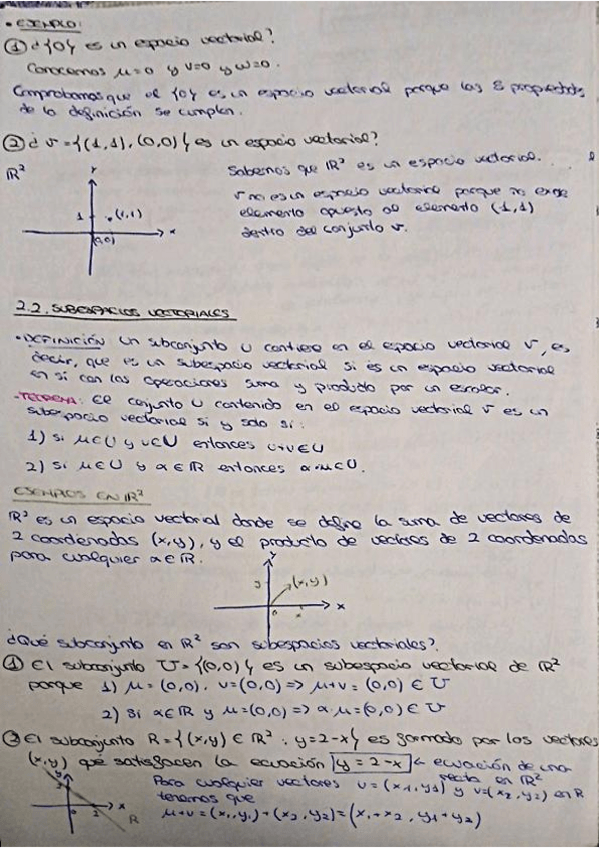 • EJEMPLO:
① ¿{0} es un espacio vectorial?
Conocemos μ=0 y v=0 y w=0.
Comprobamos que el {0} es un espacio vectorial porque las 8 propiedades
de la definición se cumplen.
② ¿ V = {(1,1), (0,0)} es un espacio vectorial?
ℝ²
Y
1
(1,1)
(0,0)
x
Sabemos que ℝ² es un espacio vectorial.
V no es un espacio vectorial porque no existe
elemento opuesto al elemento (1,1)
dentro del conjunto V.
2.2. SUBESPACIOS VECTORIALES
• DEFINICIÓN Un subconjunto U contiene en el espacio vectorial V, es
decir, que es un subespacio vectorial si es un espacio vectorial
en sí con las operaciones suma y producto por un escalar.
• TEOREMA: El conjunto U contenido en el espacio vectorial V es un
subespacio vectorial si y solo si:
1) Si μ∈U y v∈U entonces u+v∈U
2) Si μ∈U y α∈ℝ entonces α·μ∈U.
EJEMPLOS EN ℝ²
ℝ² es un espacio vectorial donde se define la suma de vectores de
2 coordenadas (x,y), y el producto de vectores de 2 coordenadas
para cualquier α∈ℝ.
Y
y
(x,y)
0
x
x
¿Qué subconjunto en ℝ² son subespacios vectoriales?
① El subconjunto U = {(0,0)} es un subespacio vectorial de ℝ²
porque 1) μ = (0,0), v=(0,0) => μ+v = (0,0) ∈ U
2) Si α∈ℝ y μ=(0,0) => α·μ=(0,0) ∈ U
② El subconjunto R = {(x,y) ∈ ℝ² : y=2-x} es formado por los vectores
(x,y) que satisfacen la ecuación y = 2-x ← ecuación de una
recta en ℝ²
Para cualquier vectores u = (x₁,y₁) y v=(x₂,y₂) en R
tenemos que
μ+v = (x₁,y₁)+(x₂,y₂)=(x₁+x₂, y₁+y₂)
y
2
0
2
x
R